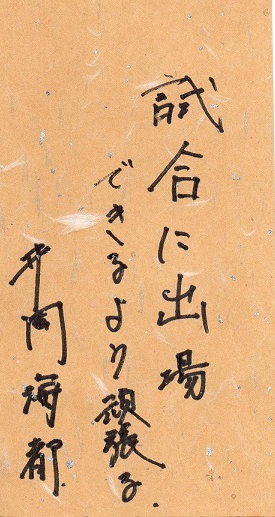 試合に出場
できるより頑張る.
井岡海都.